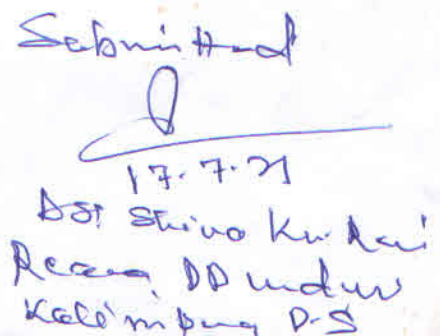 Submitted
17.7.21
ASI Shiva Kr. Rai
DD under
Kalimpong P.S